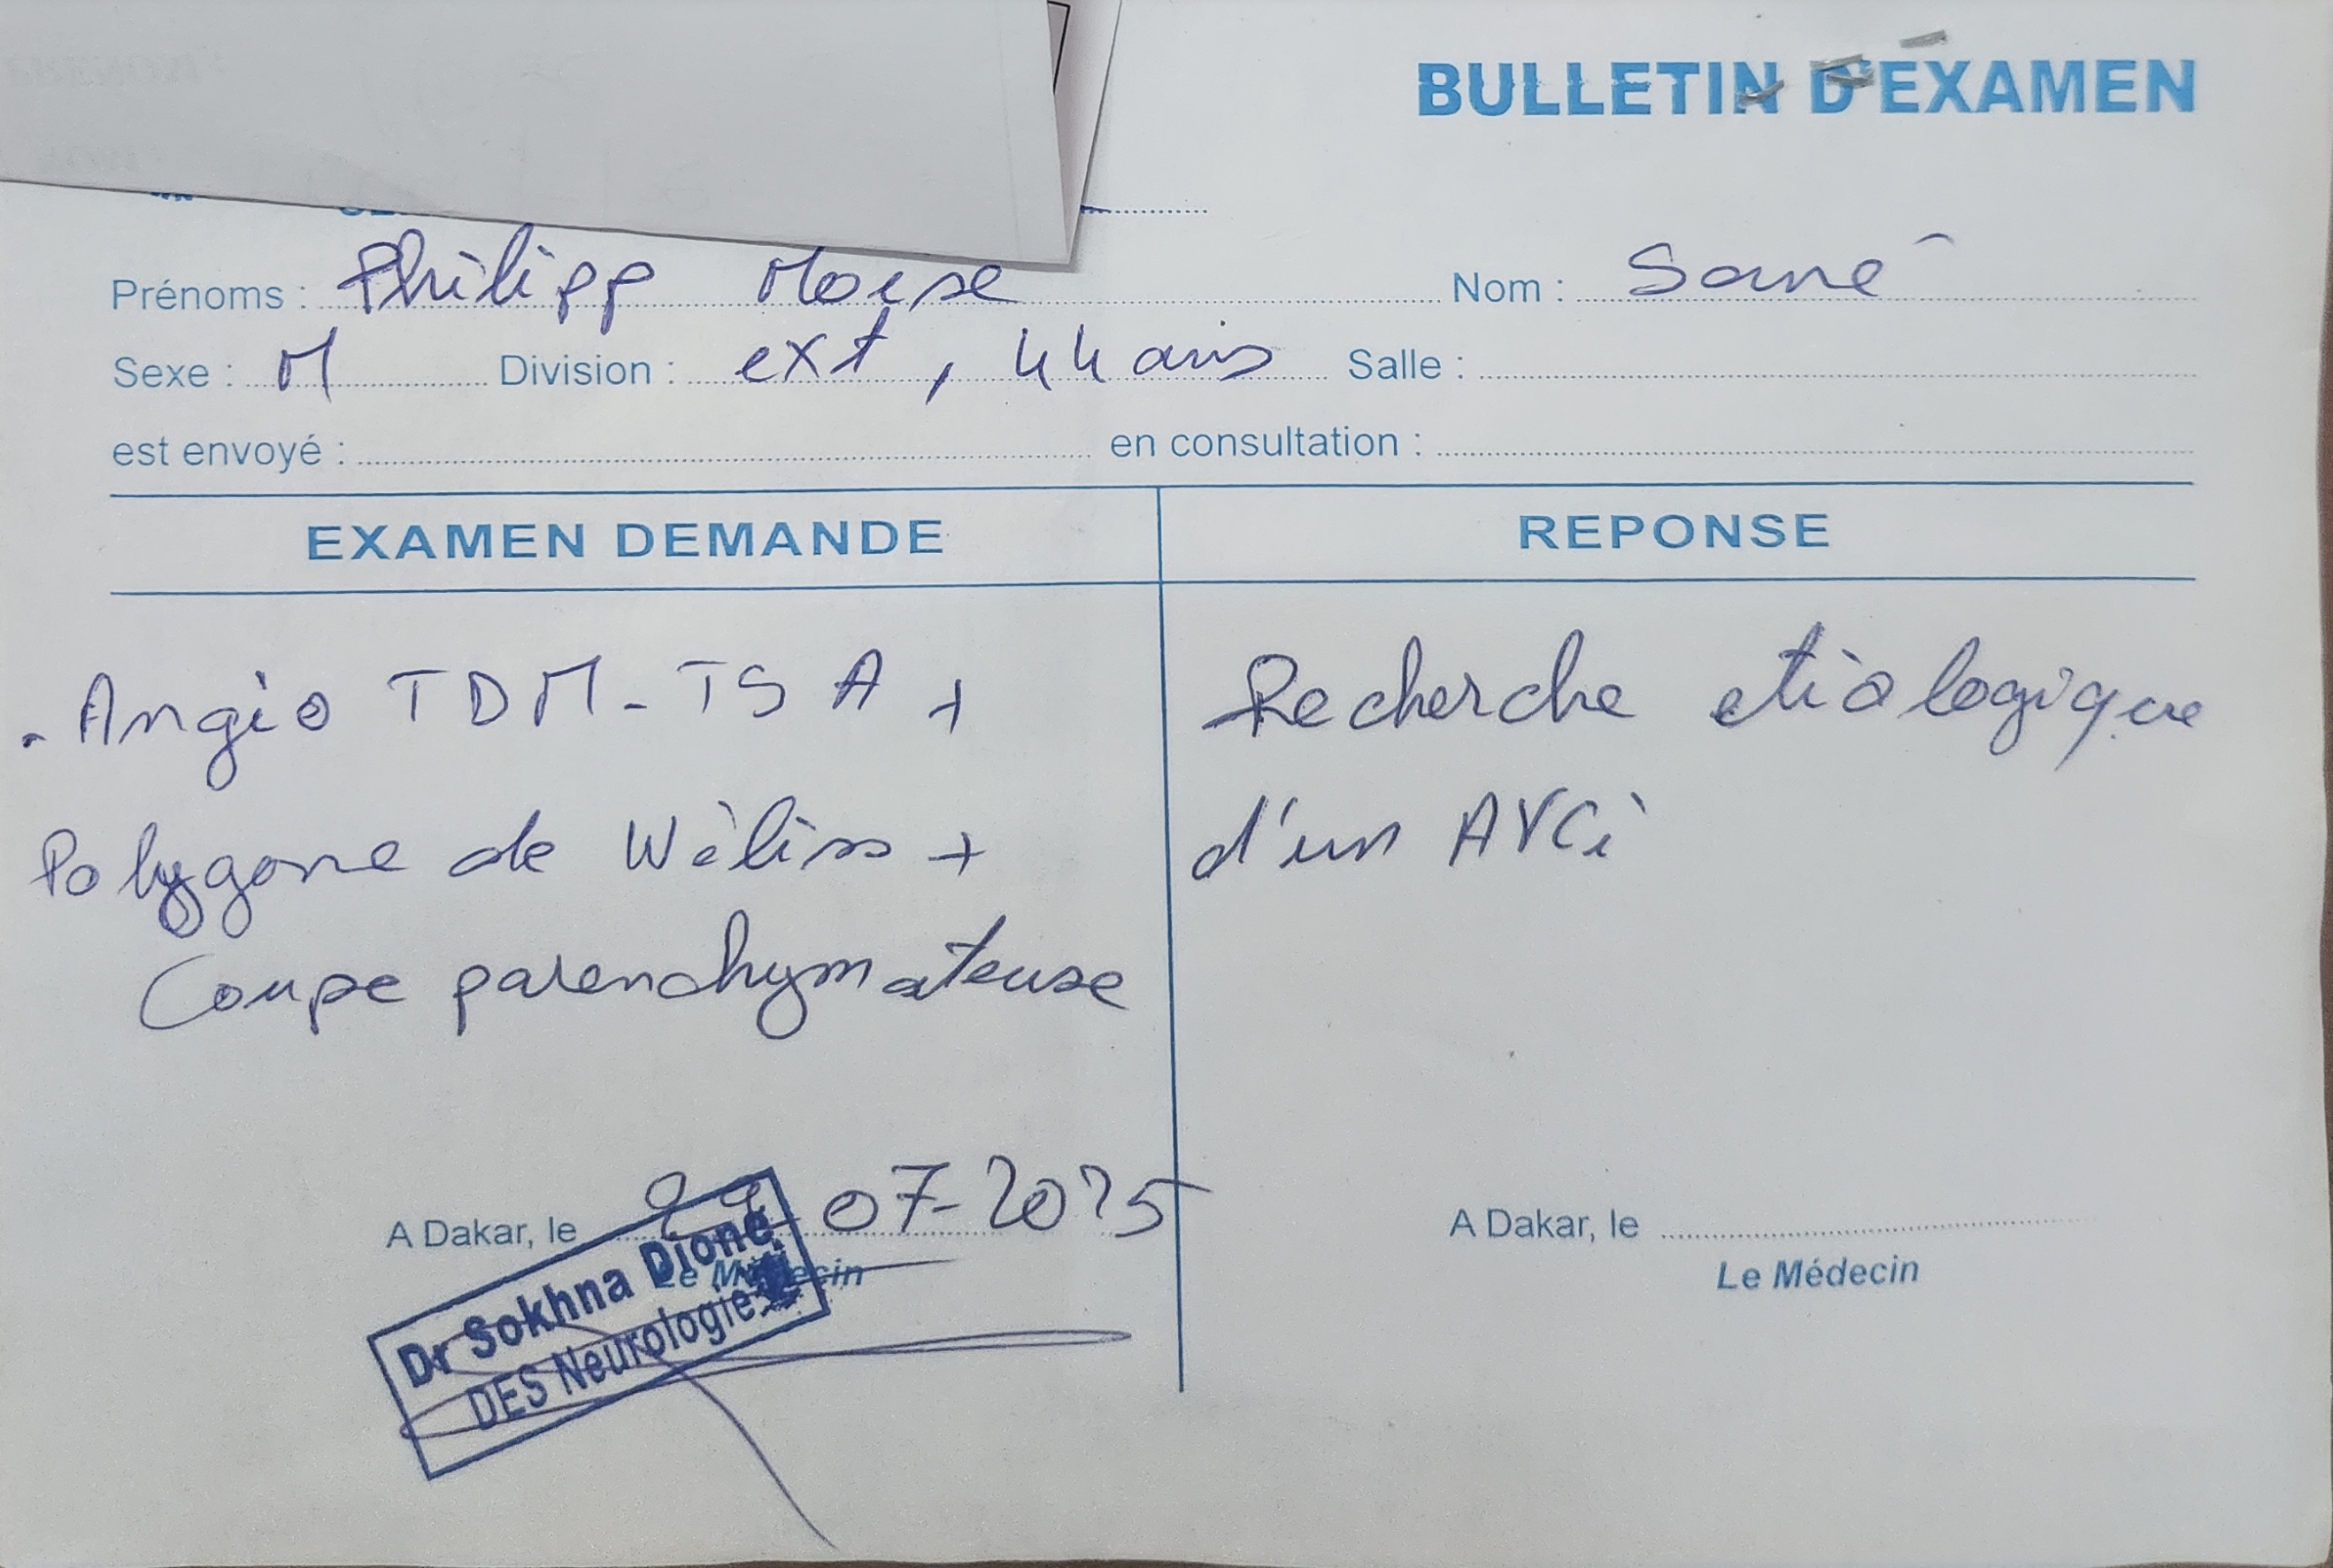 BULLETIN D'EXAMEN
Prénoms : Philipp Moise Nom : Sané
Sexe : M Division : ext, 44 ans Salle :
est envoyé : en consultation :
EXAMEN DEMANDE REPONSE
- Angio TDM-TSA + Recherche etiologique
Polygone de Wiliss + d'un AVCi
Coupe parenchymateuse
A Dakar, le 07-2025 A Dakar, le
Le Médecin Le Médecin
Dr Sokhna Dione
DES Neurologie